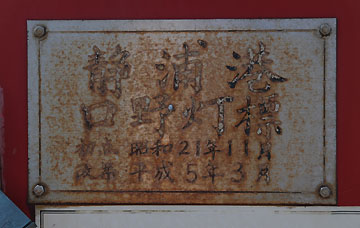 静浦港
口野灯標
初点 昭和21年11月
改築 平成5年3月